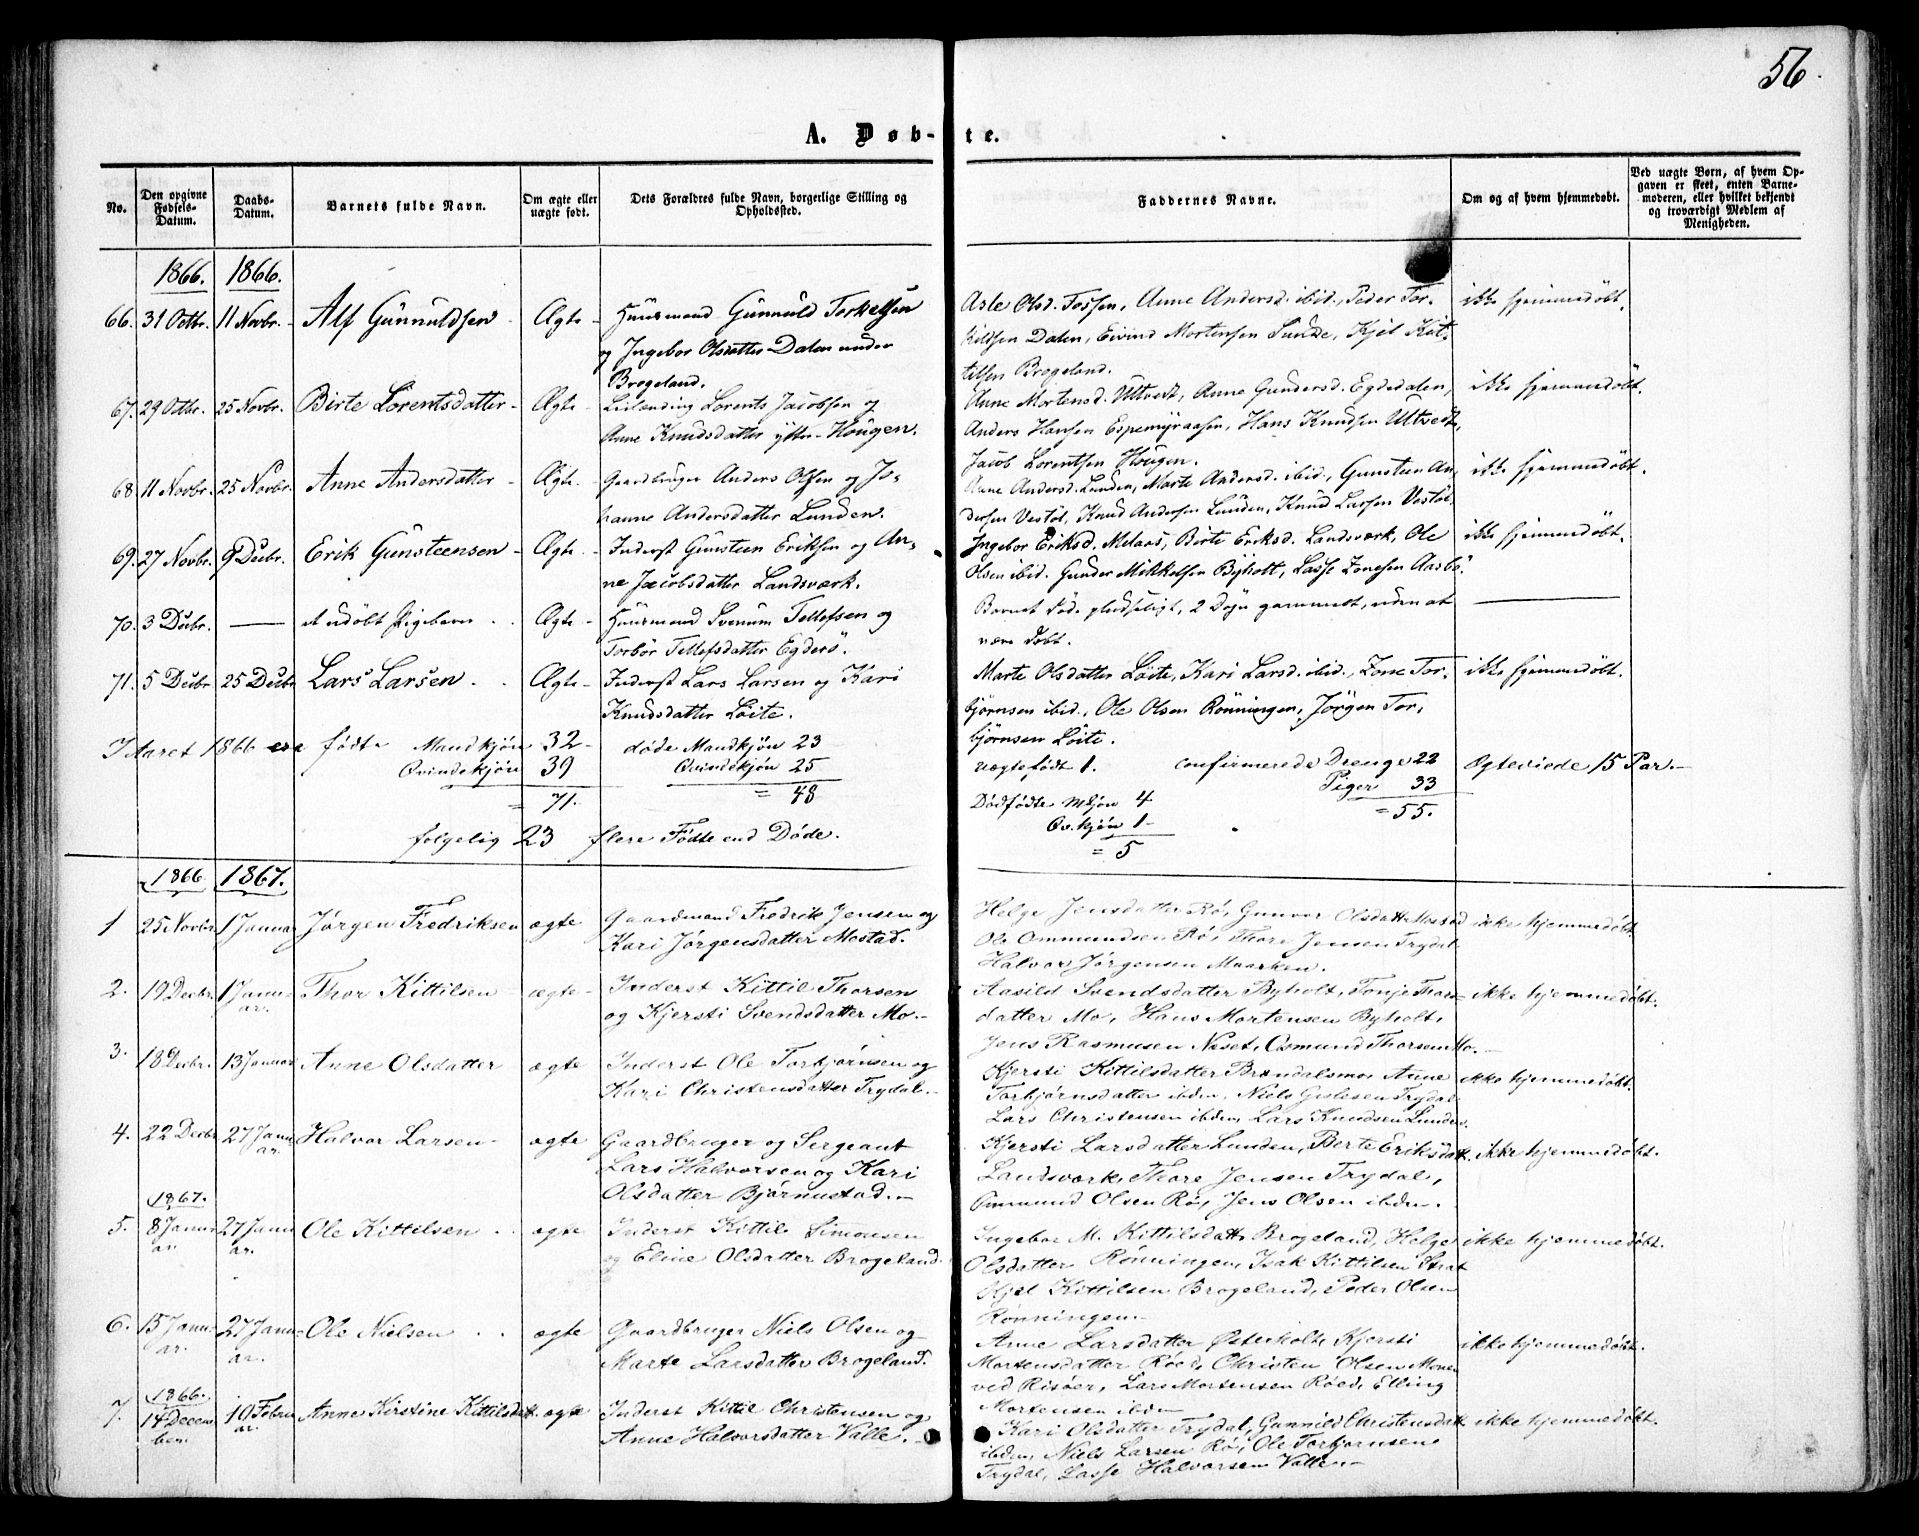 56.
A. Døb-te.
No.
Den opgivne Fødsels-Datum.
Daabs-Datum.
Barnets fulde Navn.
Om ægte eller uægte født.
Dets Forældres fulde Navn, borgerlige Stilling og Opholdsted.
Faddernes Navne.
Om og af hvem hjemmedøbt.
Ved uægte Børn, af hvem Opgaven er skeet, enten Barnemoderen, eller hvilket bekjendt og troværdigt Medlem af Menigheden.
1866. 1866.
66. 31 Octbr. 11 Novbr. Alf Gunnuldsen Ægte Huusmand Gunnuld Torkelsen
og Ingebor Olsdatter Dalen under
Brogeland.
Asle Olsd. Fossen, Anne Andersd. ibid, Peder Tor-
kildsen Dalen, Eivind Mortensen Sunde, Kjel Kit-
tilsen Brogeland.
ikke hjemmedøbt.
67. 29 Octbr. 25 Novbr. Birte Lorentsdatter Ægte Leilænding Lorents Jacobsen og
Anne Knudsdatter yttre-Hougen.
Anne Mortensd. Ultvedt, Anne Gundersd. Egdedalen,
Anders Hansen Espemyraasen, Hans Knudsen Ultvedt,
Jacob Lorentsen Hougen.
ikke hjemmedøbt.
68. 11 Novbr. 25 Novbr. Anne Andersdatter Ægte Gaardbruger Anders Olsen og Jo-
hanne Andersdatter Lunden.
Anne Andersd. Lunden, Marte Andersd. ibid, Gunsteen An-
dersen Vestøl, Knud Andersen Lunden, Knud Larsen Vestøl
ikke hjemmedøbt.
69. 27 Novbr. 9 Decbr. Erik Gunsteensen Ægte Inderst Gunsteen Eriksen og An-
ne Jacobsdatter Landsværk.
Ingebor Eriksd. Melaas, Birte Eriksd. Landsværk, Ole
Olsen ibid. Gunder Mikkelsen Byholt, Lasse Zonesen Aasbø.
ikke hjemmedøbt.
70. 3 Decbr. — et udøbt Pigebarn Ægte Huusmand Svenum Tellefsen og
Torbør Tellefsdatter Egderø.
Barnet døde pludseligt, 2 Døgn gammelt, uden at
være døbt.
71. 5 Decbr 25 Decbr Lars Larsen Ægte Inderst Lars Larsen og Kari
Knudsdatter Løite.
Marte Olsdatter Løite, Kari Larsd. ibid, Zone Tor-
bjørnsen ibid, Ole Olsen Rønningen, Jørgen Tor-
bjørnsen Løite.
ikke hjemmedøbt.
I Aaret 1866 ere fødte Mandkjøn 32 døde Mandkjøn 23
Qvindekjøn 39 Qvindekjøn 25
= 71. = 48
folgelig 23 flere Fødte end Døde.
uægte født 1. confirmerede Drenge 22 Ægteviede 15 Par.
Piger 33
= 55.
Dødfødte Mkjøn 4
Qv.kjøn 1
= 5
1866 1867.
1 25 Novbr 1 Januar Jørgen Fredriksen ægte Gaardmand Fredrik Jensen og
Kari Jørgensdatter Mostad.
Helge Jensdatter Rø, Gunvor Olsdatter Mostad
Ole Ommundsen Rø, Thore Jensen Trydal
Halvor Jørgensen Maarken.
ikke hjemmedøbt.
2. 19 Decbr. 1 Januar. Thor Kittilsen ægte Inderst Kittil Thorsen
og Kjersti Svendsdatter Mo.
Aasild Svendsdatter Byholt, Tonje Thors-
datter Mo, Hans Mortensen Byholt,
Jens Rasmusen Næset, Osmund Thorsen Mo.
ikke hjemmedøbt.
3. 18 Decbr. 13 Januar Anne Olsdatter ægte Inderst Ole Torbjørnsen og
Kari Christensdatter Trydal.
Kjersti Kittilsdatter Brøndalsmo, Anne
Torbjørnsdatter ibden, Niels Gislesen Trydal
Lars Christensen ibden, Lars Knudsen Lunden.
ikke hjemmedøbt.
4. 22 Decbr 27 Januar. Halvor Larsen ægte Gaardbruger og Sergeant
Lars Halvorsen og Kari
Olsdatter Bjørnustad.
Kjersti Larsdatter Lunden, Berte Eriksdatt.
Landsværk, Thore Jensen Trydal,
Ommund Olsen Rø, Jens Olsen ibden.
ikke hjemmedøbt.
1867.
5. 8 Januar. 27 Januar. Ole Kittilsen ægte Inderst Kittil Simonsen
og Eline Olsdatter Brogeland.
Ingebor M. Kittilsdatt. Brogeland, Helge
Olsdatter Rønningen, Isak Kittilsen Strat
Kjel Kittilsen Brogeland, Peder Olsen
Rønningen.
ikke hjemmedøbt.
6. 15 Januar. 27 Januar. Ole Nielsen ægte Gaardbruger Niels Olsen og
Marte Larsdatter Brogeland.
Anne Larsdatter Østerholt, Kjersti
Mortensdatter Røed, Christen Olsen Moen
ved Risøer, Lars Mortensen Røed, Elling
Mortensen ibden
ikke hjemmedøbt.
1866.
7. 14 December. 10 Februar. Anne Kirstine Kittilsdatt. ægte Inderst Kittil Christensen og
Anne Halvorsdatter Valle.
Kari Olsdatter Trydal, Gunnild Christensdatt.
ibden, Niels Larsen Rø, Ole Torbjørnsen
Trydal, Lasse Halvorsen Valle.
ikke hjemmedøbt.